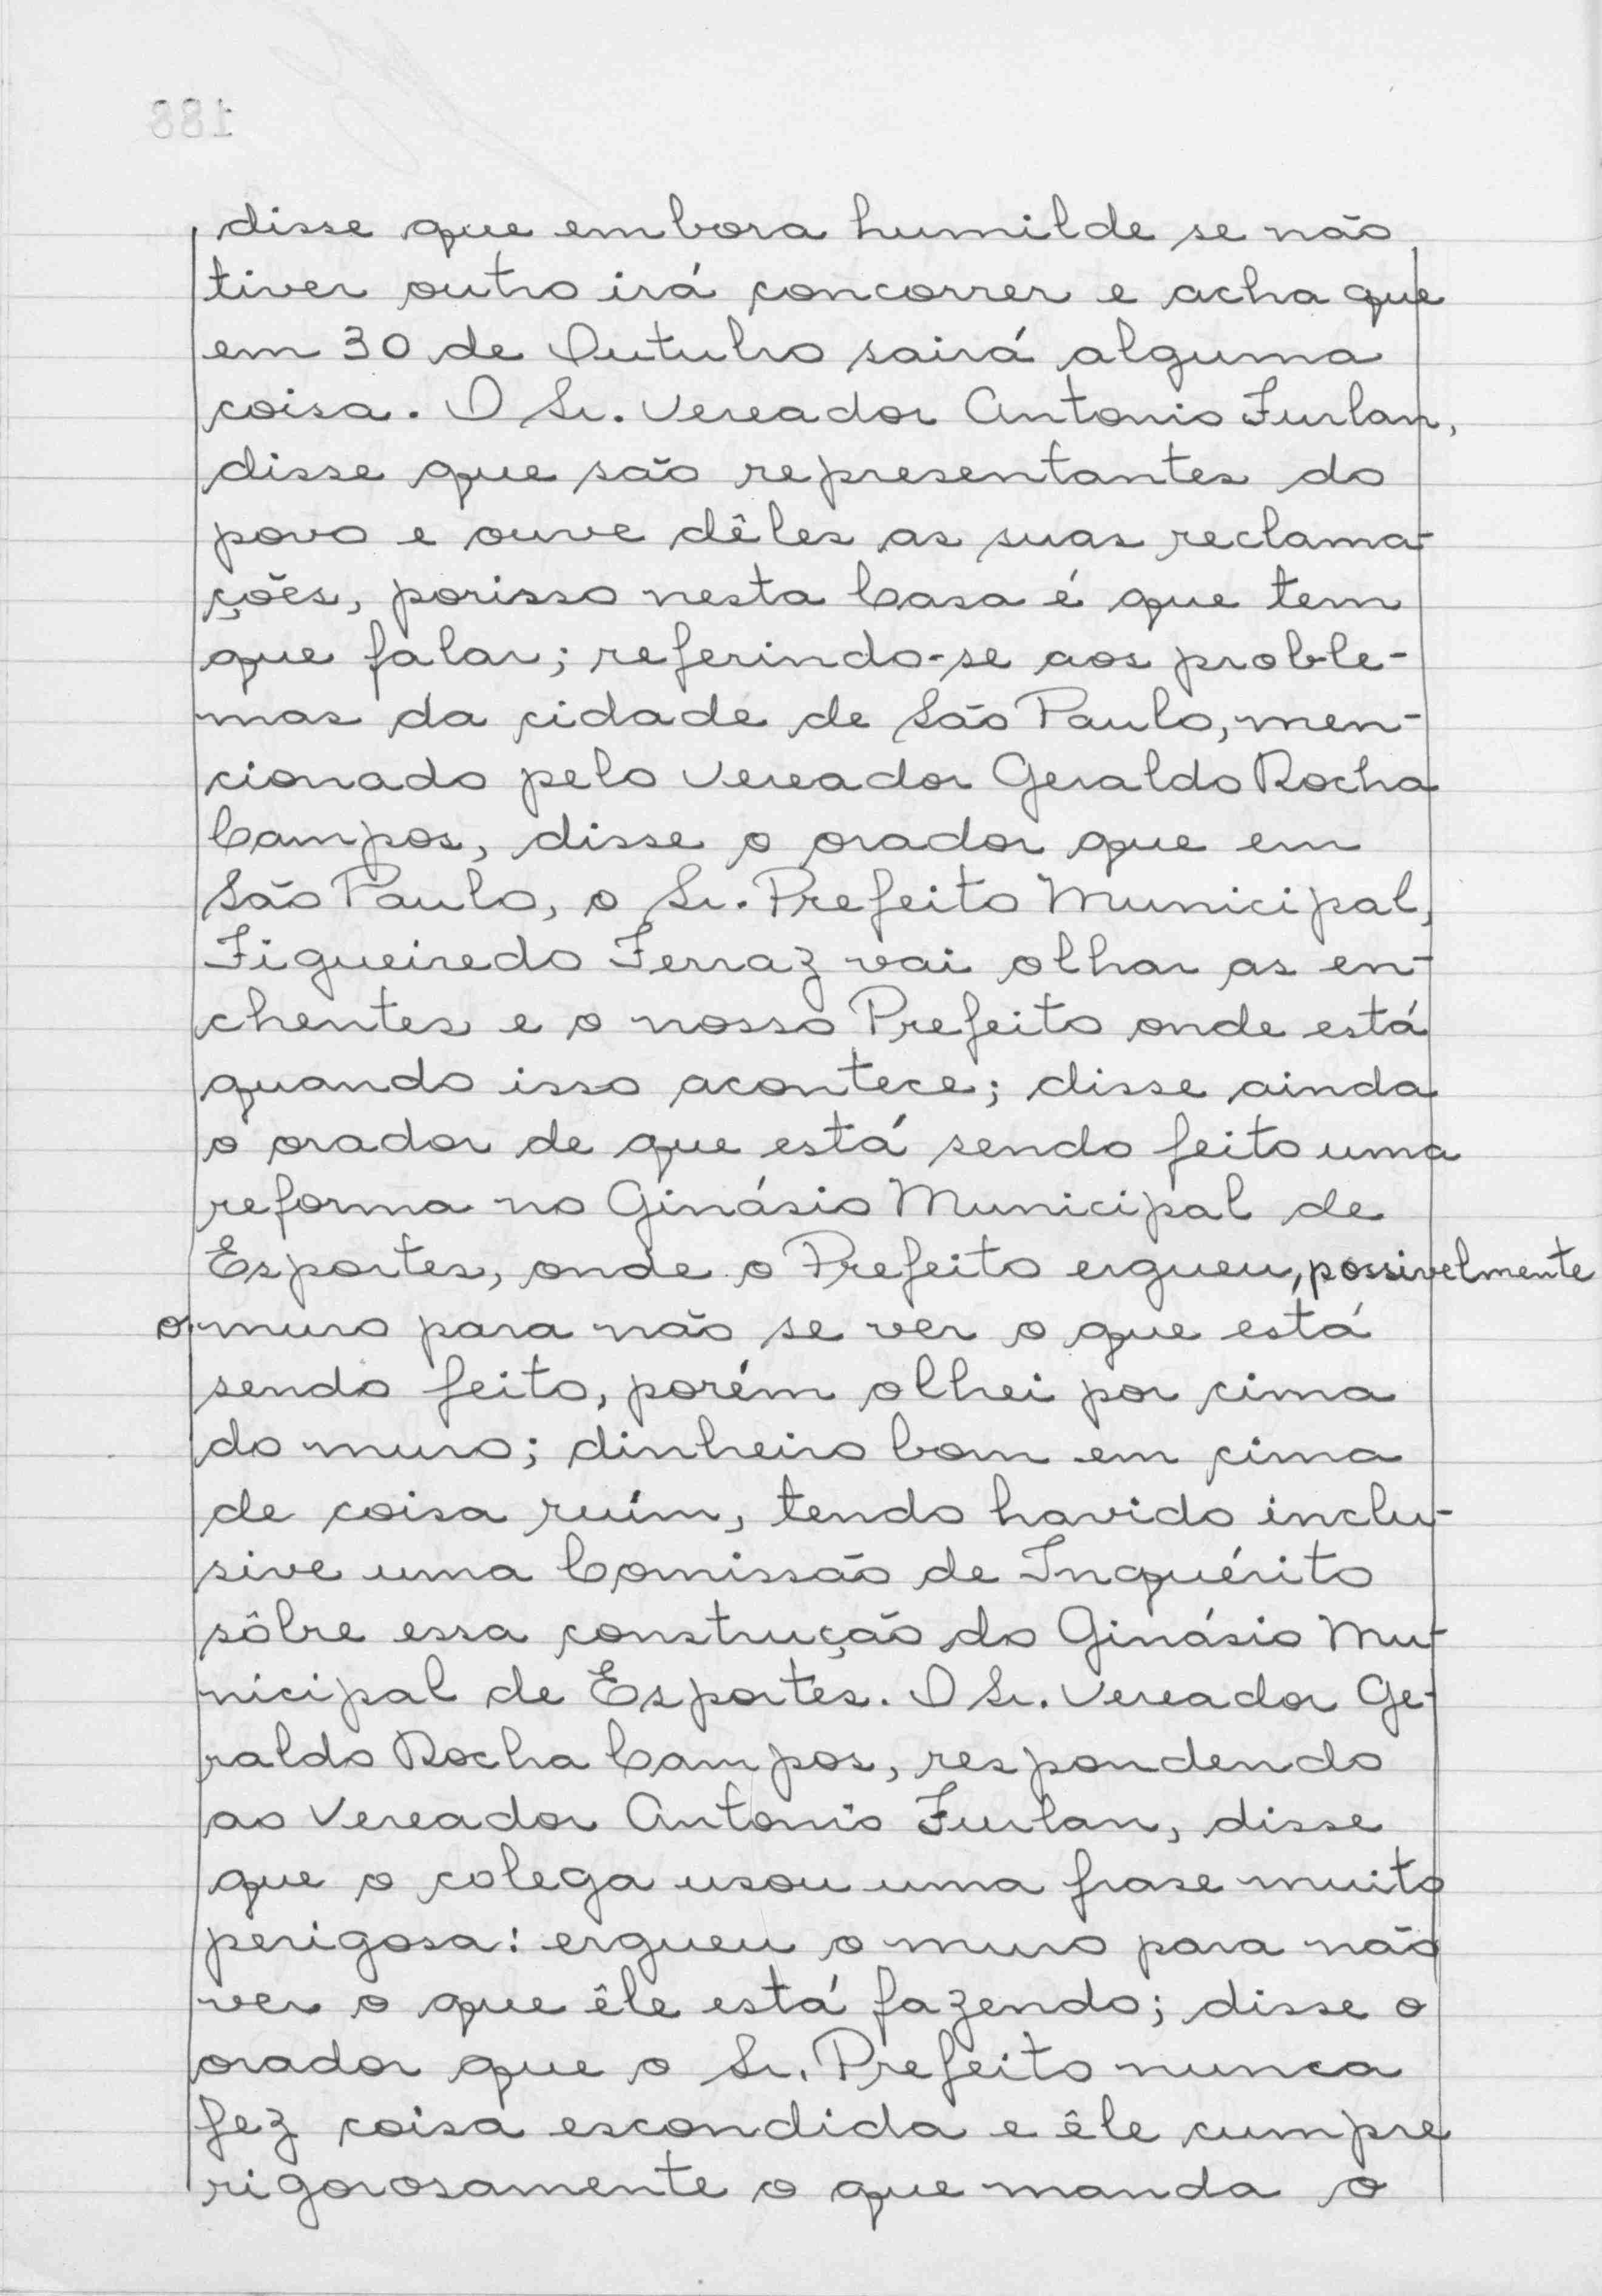 disse que embora humilde se não
tiver outro irá concorrer e acha que
em 30 de Outubro sairá alguma
coisa. O Sr. Vereador Antonio Furlan,
disse que são representantes do
povo e ouve dêles as suas reclama-
ções, porisso nesta Casa é que tem
que falar; referindo-se aos proble-
mas da cidade de São Paulo, men-
cionado pelo Vereador Geraldo Rocha
Campos, disse o orador que em
São Paulo, o Sr. Prefeito Municipal,
Figueiredo Ferraz vai olhar as en-
chentes e o nosso Prefeito onde está
quando isso acontece; disse ainda
o orador de que está sendo feito uma
reforma no Ginásio Municipal de
Esportes, onde o Prefeito ergueu, possivelmente
o muro para não se ver o que está
sendo feito, porém olhei por cima
do muro; dinheiro bom em cima
de coisa ruím, tendo havido inclu-
sive uma Comissão de Inquérito
sôbre essa construção do Ginásio Mu-
nicipal de Esportes. O Sr. Vereador Ge-
raldo Rocha Campos, respondendo
ao Vereador Antonio Furlan, disse
que o colega usou uma frase muito
perigosa: ergueu o muro para não
ver o que êle está fazendo; disse o
orador que o Sr. Prefeito nunca
fez coisa escondida e êle cumpre
rigorosamente o que manda o